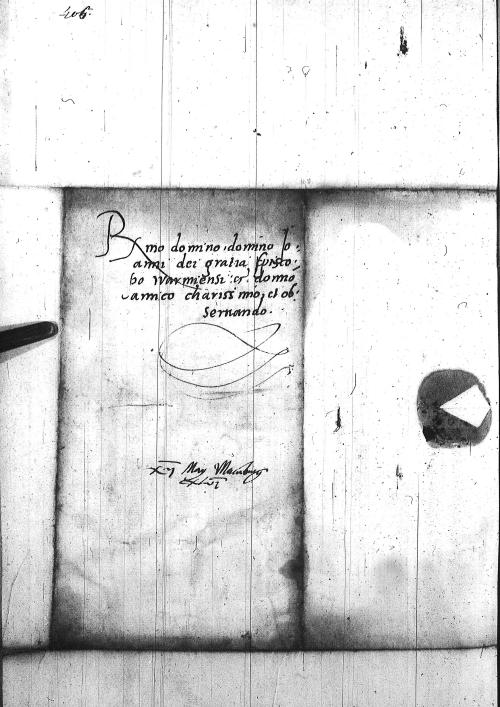 406.
Rmo domino, domino Jo:
anni dei gratia Episco:
bo Warmiensi: et domno
amico charissimo, et ob:
servando.
xvj May